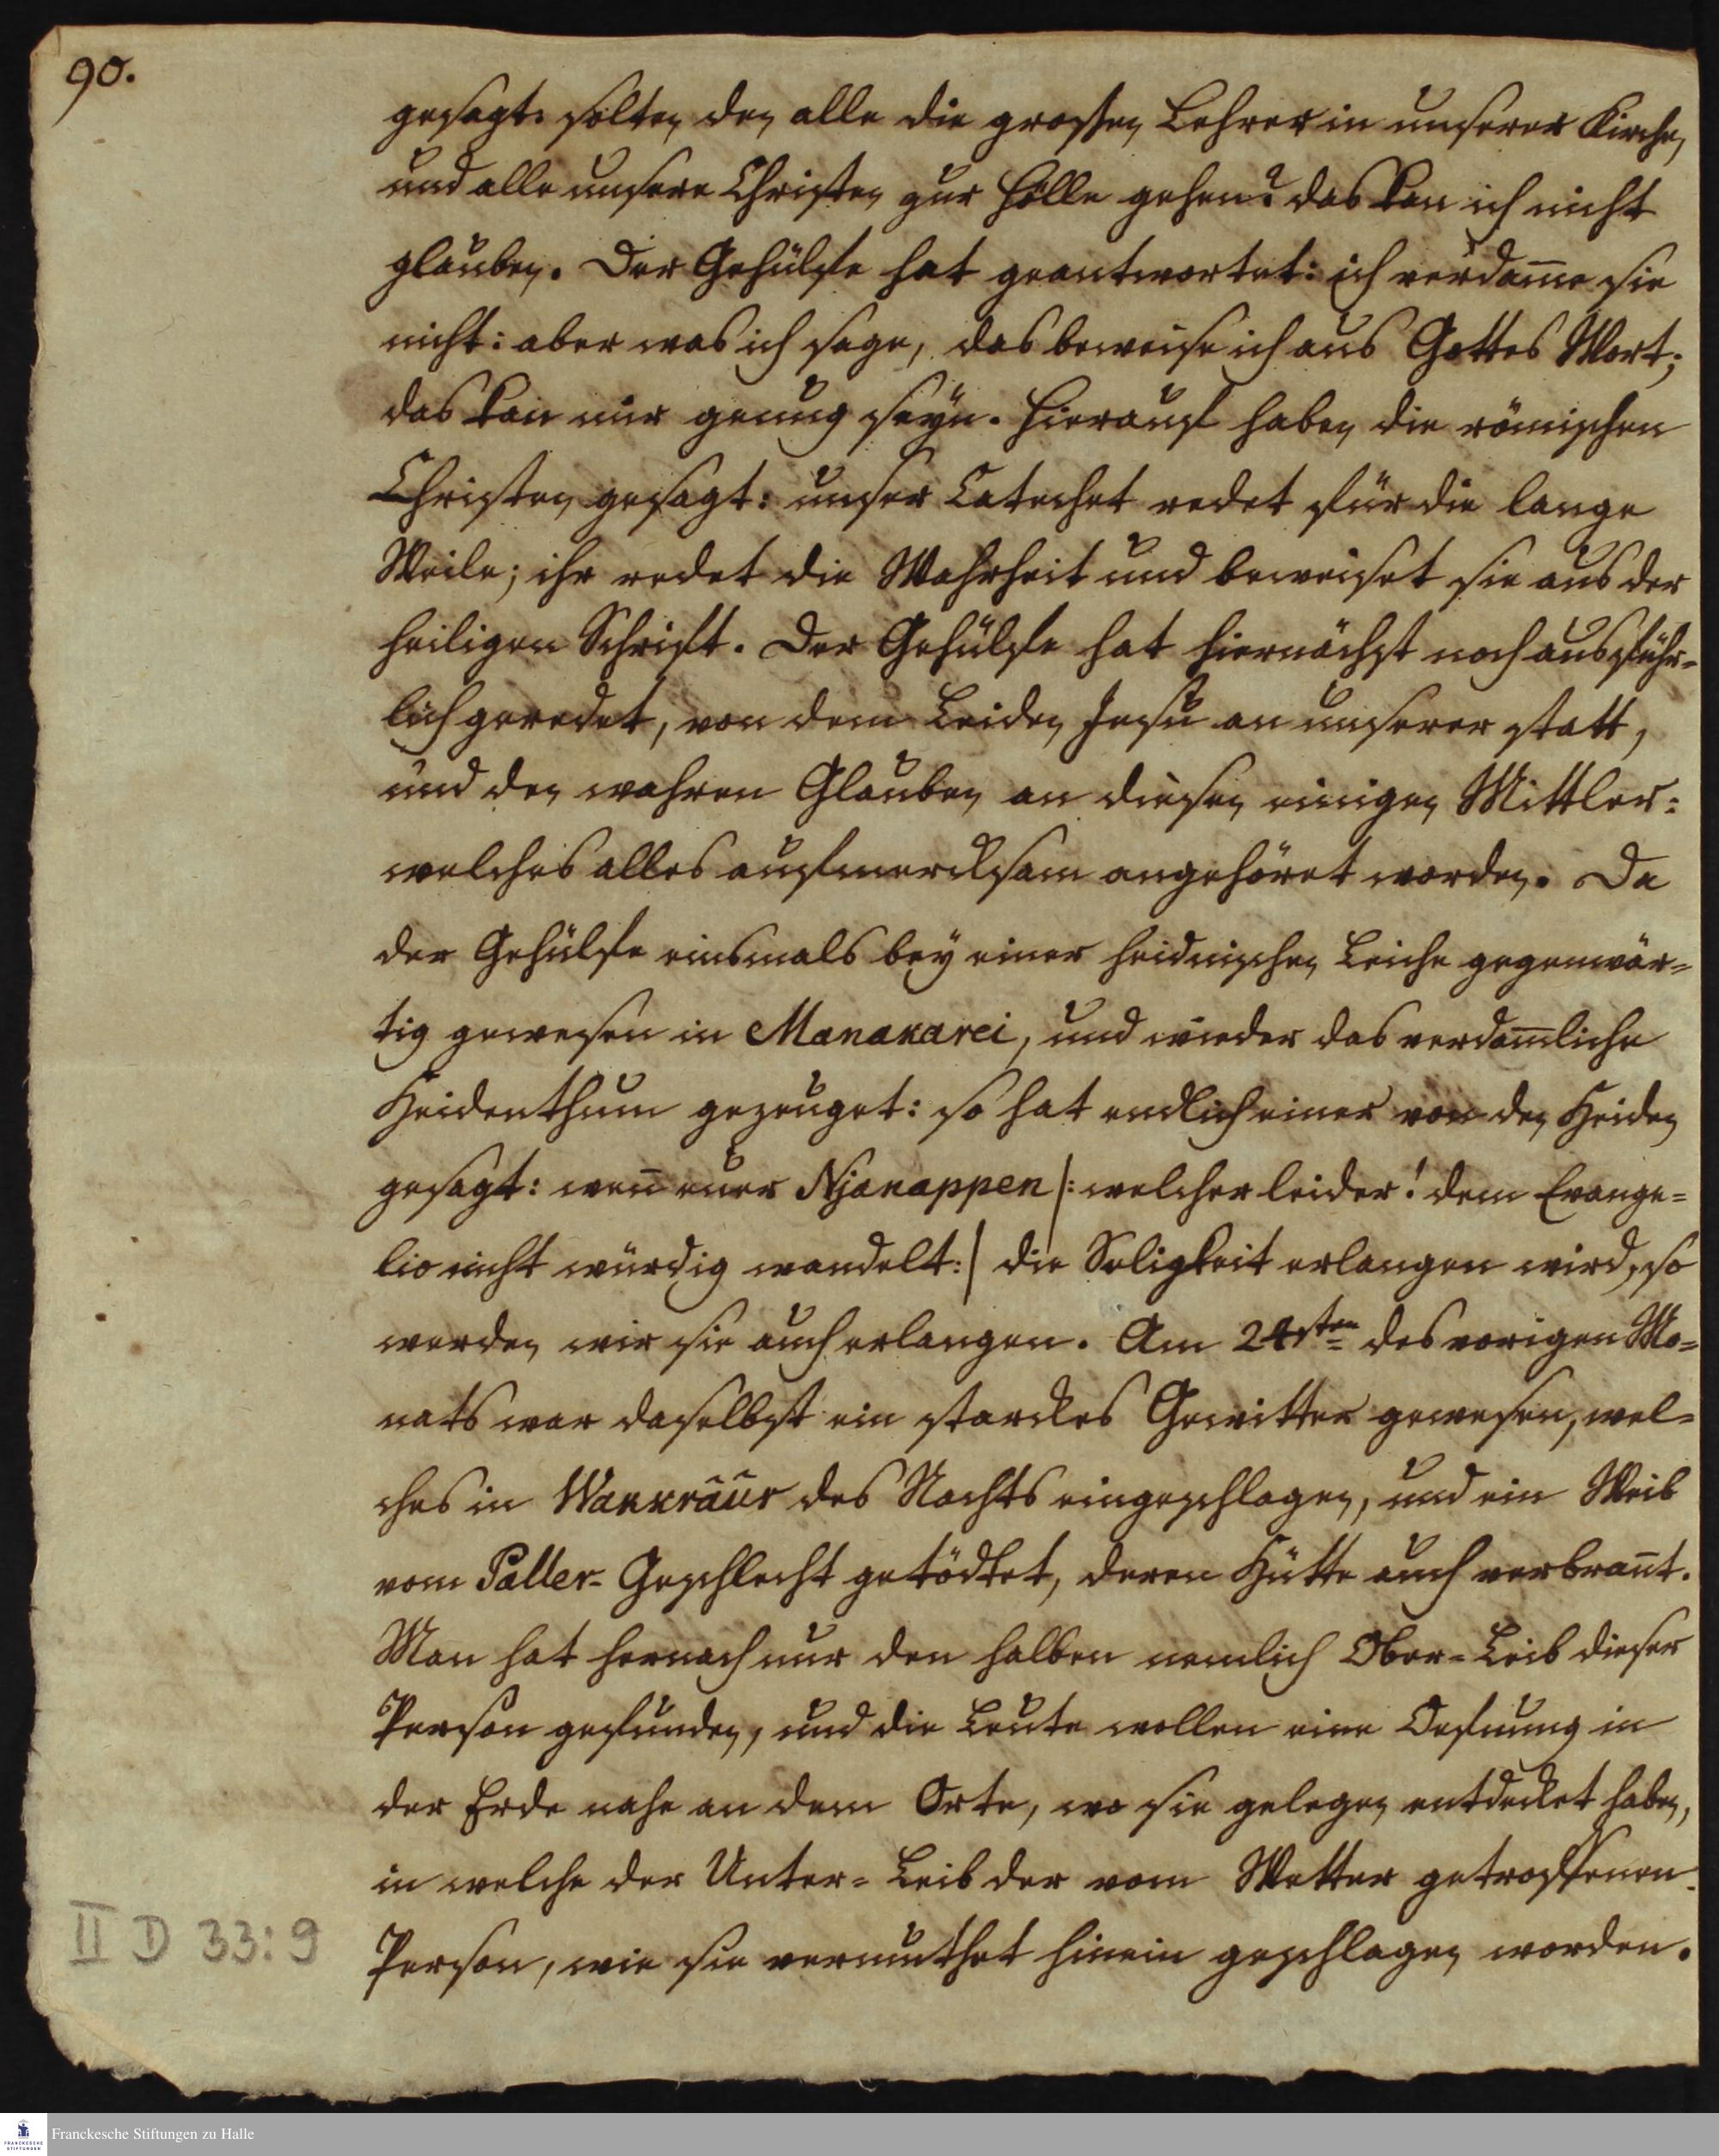 90.
gesagt: solten den alle die grossen Lehrer in unserer Kirche,
und alle unsere Christen zur Hölle gehen? das kan ich nicht
glauben. Der Gehülfe hat geantwortet: ich verdam̅e sie
nicht: aber was ich sage, das beweise ich aus Gottes Wort;
das kan mir genug seÿn. Hierauf haben die römischen
Christen gesagt: unser Catechet redet für die lange
Weile; ihr redet die Wahrheit und beweiset sie aus der
heiligen Schrift. Der Gehülfe hat hiernächst noch ausführ=
lich geredet, von dem Leiden Jesu an unserer statt,
und den wahren Glauben an diesen einigen Mittler:
welches alles aufmercksam angehöret worden. Da
der Gehülfe einsmals beÿ einer heidnischen Leiche gegenwär=
tig gewesen in Manakarei, und wieder das verdam̅liche
Heidenthum gezeuget: so hat endlich einer von den Heiden
gesagt: wen̅ euer Njanappen |: welcher leider! dem Evange=
lio nicht würdig wandelt:| die Seligkeit erlangen wird, so
werden wir sie auch erlangen. Am 24sten des vorigen Mo=
nats war daselbst ein starckes Gewitter gewesen, wel=
ches in Wakkrâûr des Nachts eingeschlagen, und ein Weib
vom Paller-Geschlecht getödtet, deren Hütte auch verbran̅t.
Man hat hernach nur den halben nemlich Ober-Leib dieser
Person gefunden, und die Leute wollen eine Oefnung in
der Erde nahe an dem Orte, wo sie gelegen entdecket haben,
in welche der Unter=Leib der vom Wetter getroffenen
Person, wie sie vermuthet hinein geschlagen worden.
II D 33:9
FRANCKESCHE STIFTUNGEN
Franckesche Stiftungen zu Halle